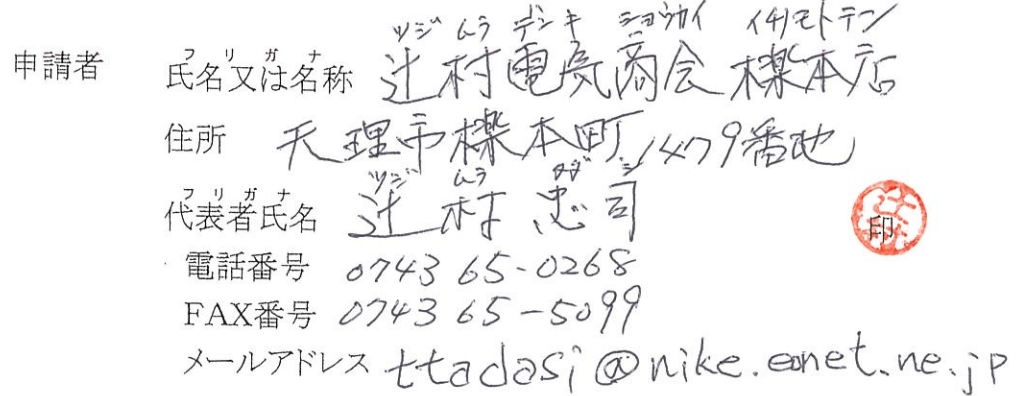 ツジ ムラ デンキ ショウカイ イチノモトテン
申請者 フリガナ 氏名又は名称 辻村電気商会 櫟本店
住所 天理市櫟本町1479番地
ツジ ムラ タダ シ
フリガナ 代表者氏名 辻村 忠司 印
電話番号 0743 65-0268
FAX番号 0743 65-5099
メールアドレス ttadasi@nike.eonet.ne.jp